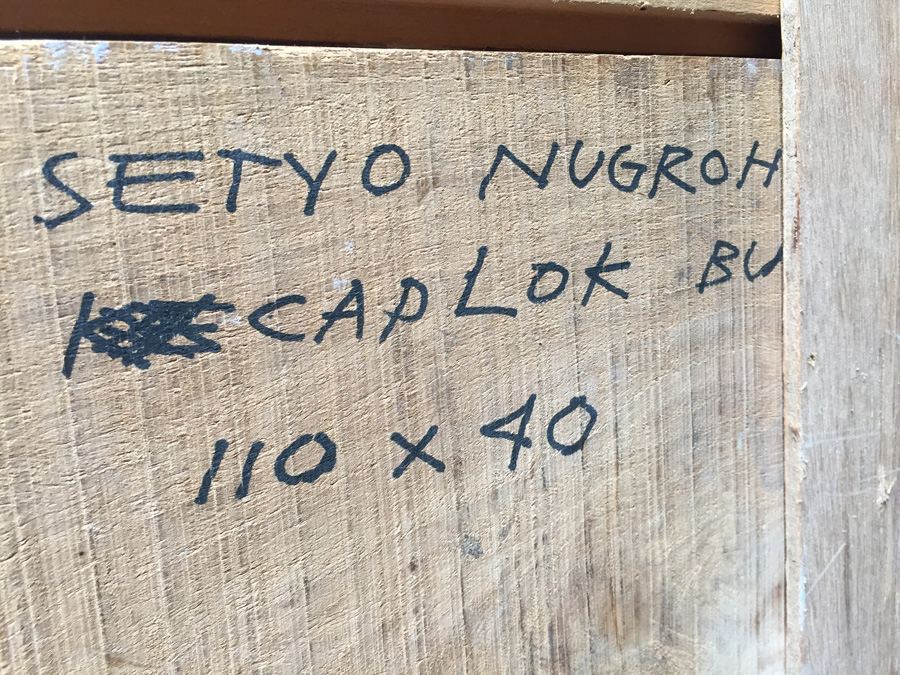 SETYO NUGROH
CAPLOK BU
110 x 40